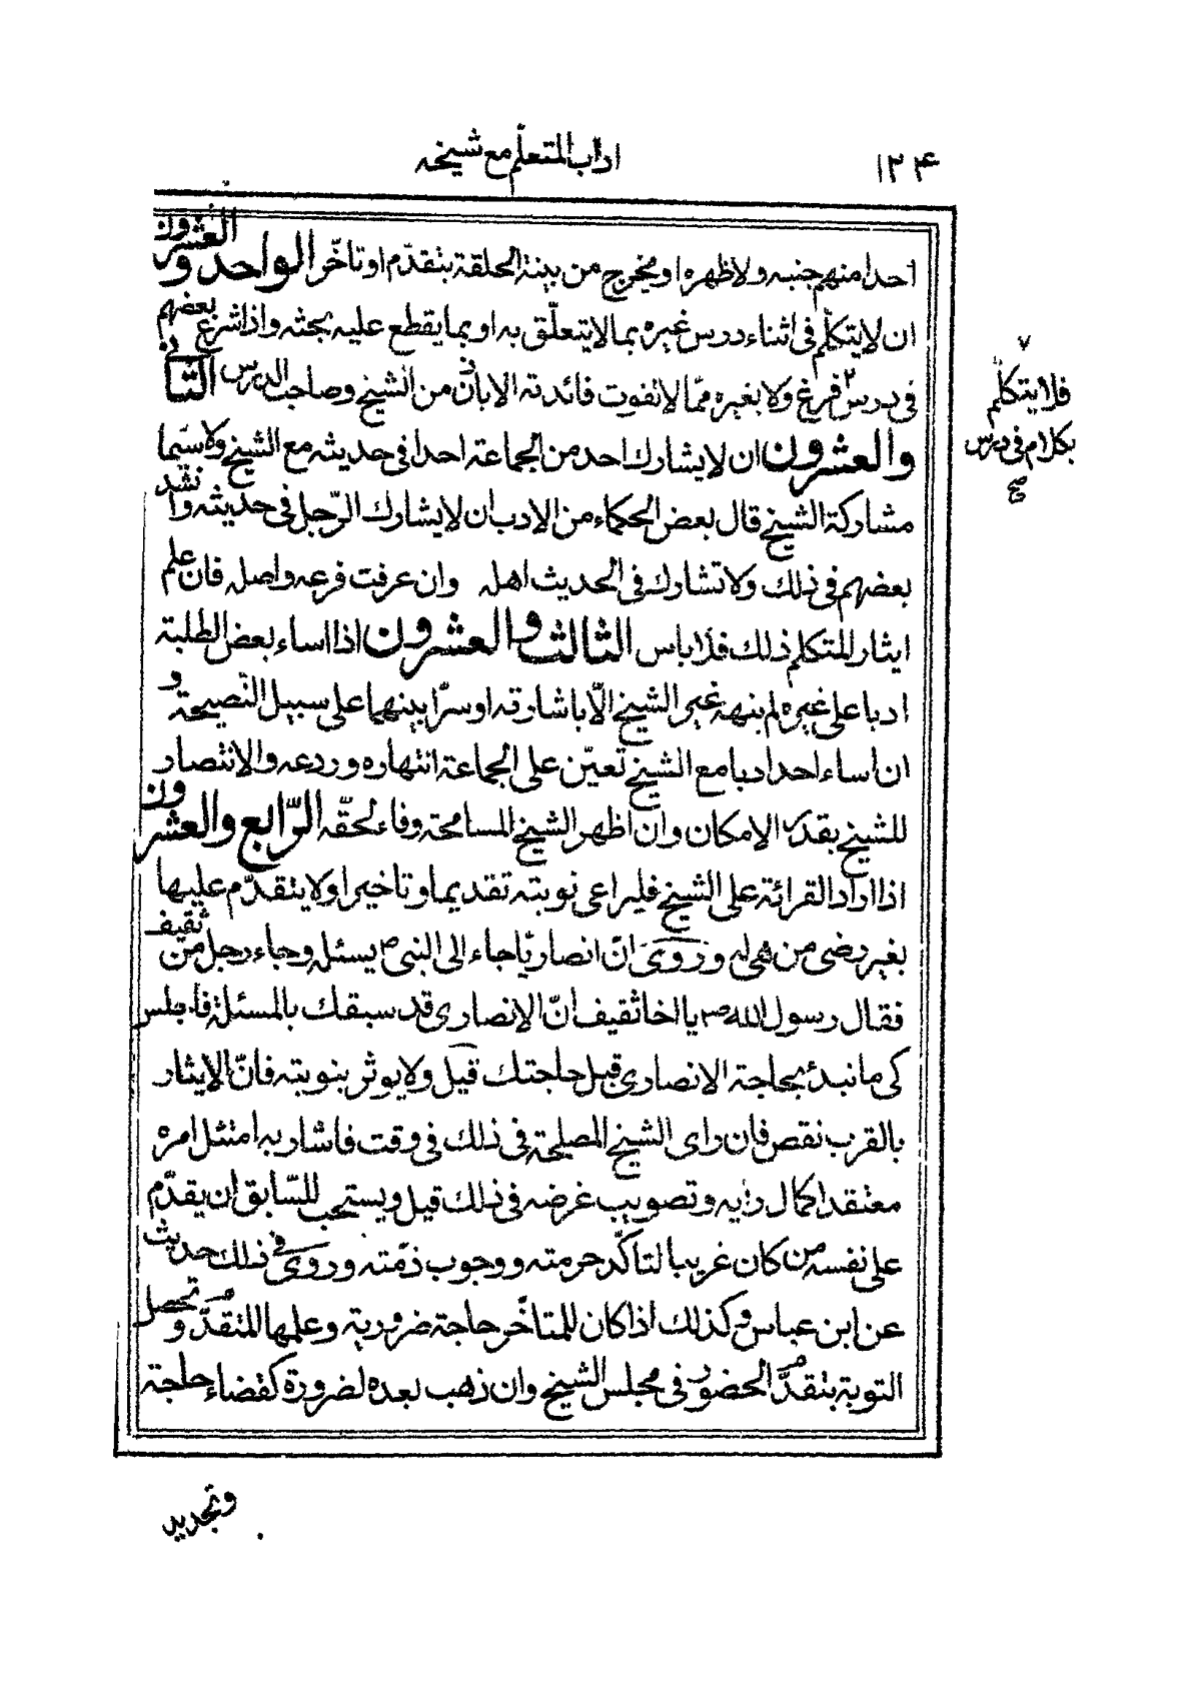 ١٢۴ اداب المتعلّم مع شيخه
احدا منهم جنبه ولا ظهره او يخرج من بينة الحلقة بتقدّم او تاخّر الواحد والعشرون
ان لا يتكلّم فى اثناء درس غيره بما لا يتعلّق به او بما يقطع عليه بحثه واذا شرع بعضهم
فى درس فرغ ولا بغيره ممّا لا تفوت فائدته الا باذن من الشيخ وصاحب الدرس الثانى
والعشرون ان لا يشارك احد من الجماعة احدا فى حديثه مع الشيخ ولا سيّما
مشاركة الشيخ قال بعض الحكماء من الادب ان لا يشارك الرّجل فى حديثه وانشد
بعضهم فى ذلك ولا تشارك فى الحديث اهله وان عرفت فرعه واصله فان علم
ايثار المتكلم ذلك فلا باس الثالث والعشرون اذا اساء بعض الطلبة
ادبا على غيره لم ينهه غير الشيخ الّا باشارته او سرّا بينهما على سبيل النّصيحة و
ان اساء احد ادبا مع الشيخ تعيّن على الجماعة انتهاره وردعه والانتصار
للشيخ بقدر الامكان وان اظهر الشيخ المسامحة وفاء لحقّه الرّابع والعشرون
اذا اراد القرائة على الشيخ فليراعى نوبته تقديما وتاخيرا ولا يتقدّم عليها
بغير رضى من هى له وروى انّ انصاريّا جاء الى النبى ص يسئله وجاء رجل من ثقيف
فقال رسول الله ص يا اخا ثقيف انّ الانصارى قد سبقك بالمسئلة فاجلس
كى ما نبدء بحاجة الانصارى قبل حاجتك قيل ولا يوثر بنوبته فانّ الايثار
بالقرب نقص فان راى الشيخ المصلحة فى ذلك فى وقت فاشار به امتثل امره
معتقدا كمال رايه وتصويب غرضه فى ذلك قيل ويستحب للسّابق ان يقدّم
على نفسه من كان غريبا لتاكّد حرمته ووجوب ذمّته وروى فى ذلك حديث
عن ابن عباس وكذلك اذا كان للمتاخّر حاجة ضرورية وعلمها المتقدّم وتحصل
النوبة بتقدّم الحضور فى مجلس الشيخ وان ذهب بعده لضرورة كقضاء حاجة
وتجديد
فلا يتكلّم
بكلام فى درس
صح